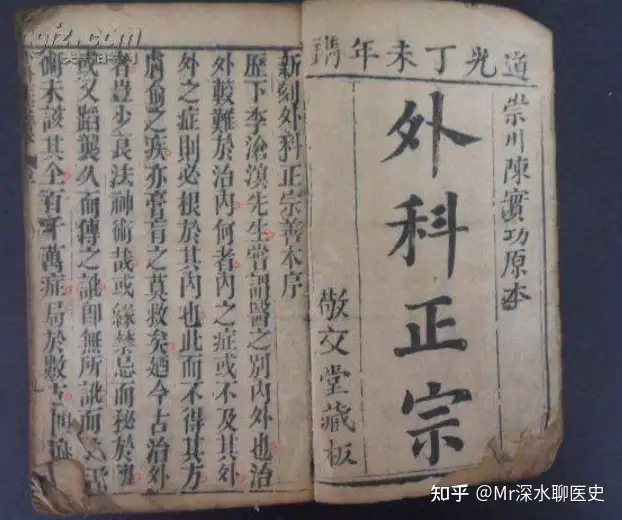 道光丁未年鐫
崇川陳實功原本
外科正宗
敬文堂藏板
新刻外科正宗善本序
歷下李滄溟先生嘗謂醫之別內外也治
外較難於治內何者內之症或不及其外
外之症則必根於其內也此而不得其方
膚俞之疾亦膏肓之莫救矣廼今古治外
者豈少良法神術哉或緣禁忌而秘於
或又蹈襲久而傳之訛即無所訛而
術未該其全百千萬症局於數
知乎 @Mr深水聊医史